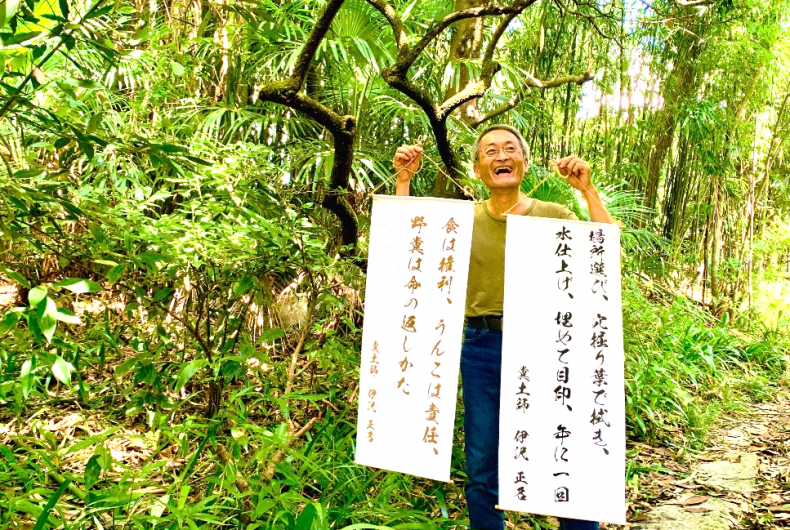 場所選び、穴掘り葉で拭き、
水仕上げ、埋めて目印、年に一回
糞土師 伊沢 正名
食は権利、うんこは責任、
野糞は命の返しかた
糞土師 伊沢 正名